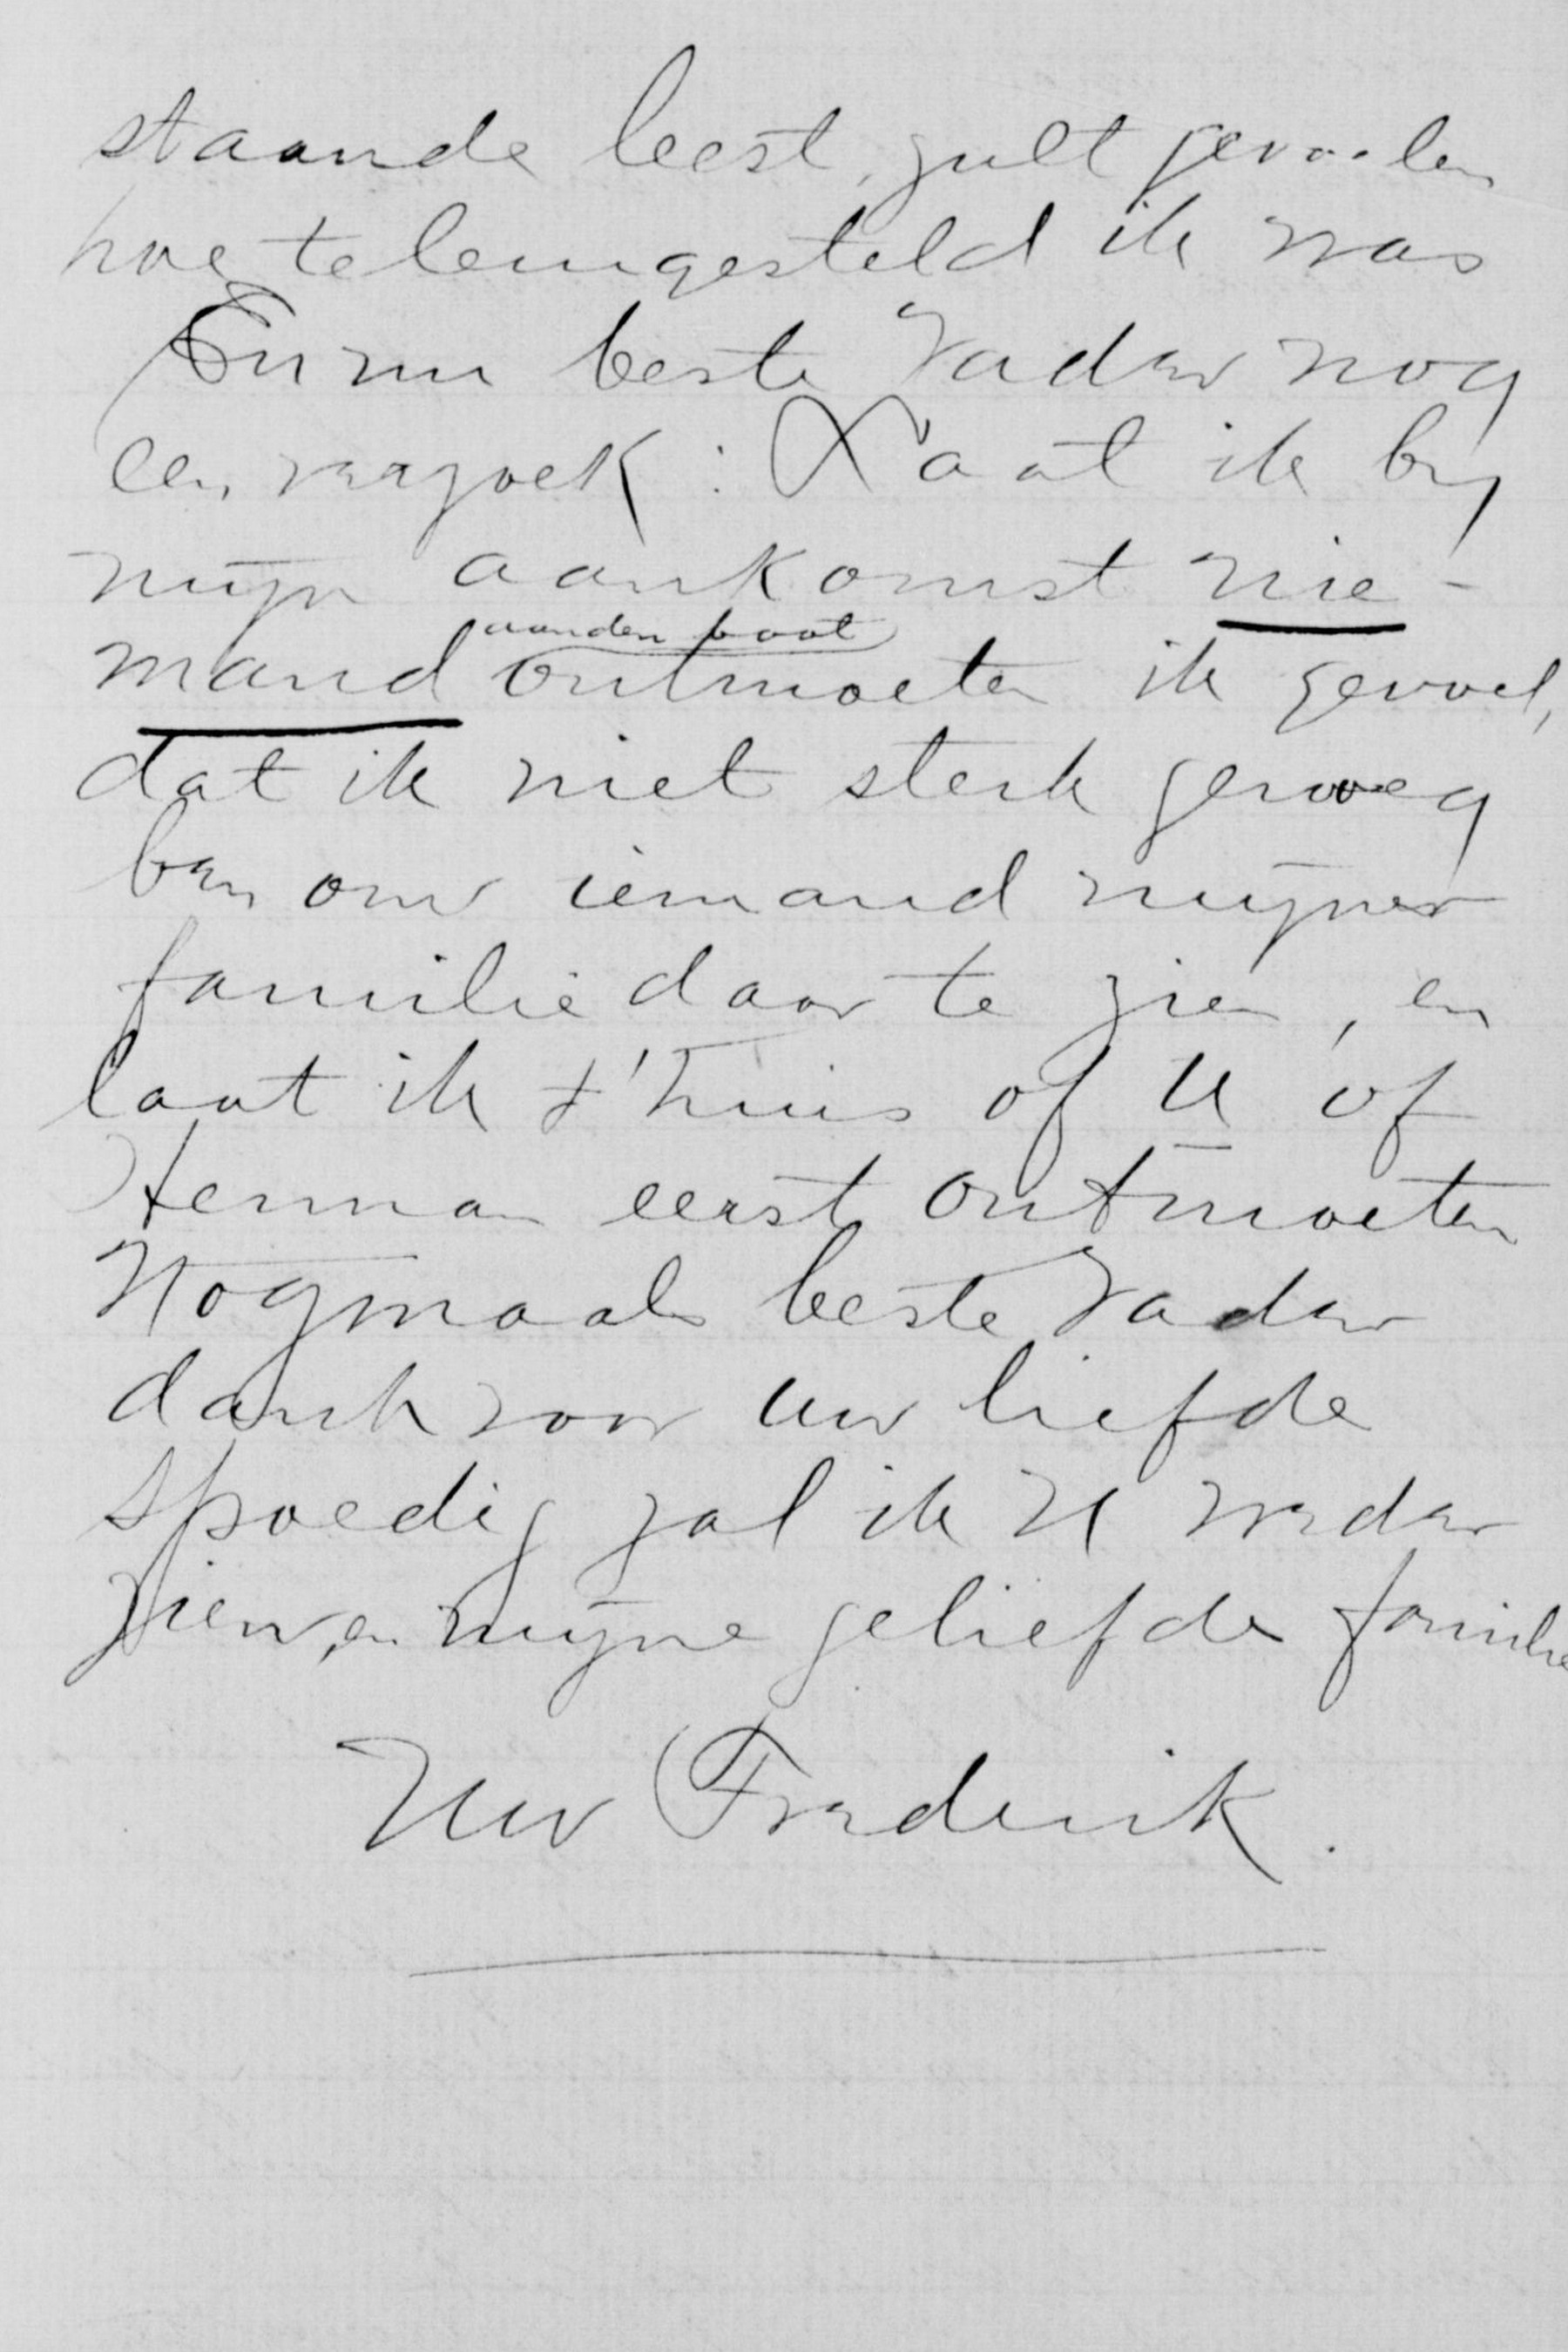 staande leest, zult gevoelen
hoe teleurgesteld ik was
En nu beste Vader nog
een verzoek: Laat ik by
mijn aankomst nie-
aan den boot
mand ontmoeten ik gevoel,
dat ik niet sterk genoeg
ben om iemand mijner
familie daar te zien, en
laat ik t'huis of U of
Herman eerst ontmoeten
Nogmaals beste Vader
dank voor uw liefde
spoedig zal ik U weder
zien, en mijne geliefde familie
Uw Frederik.